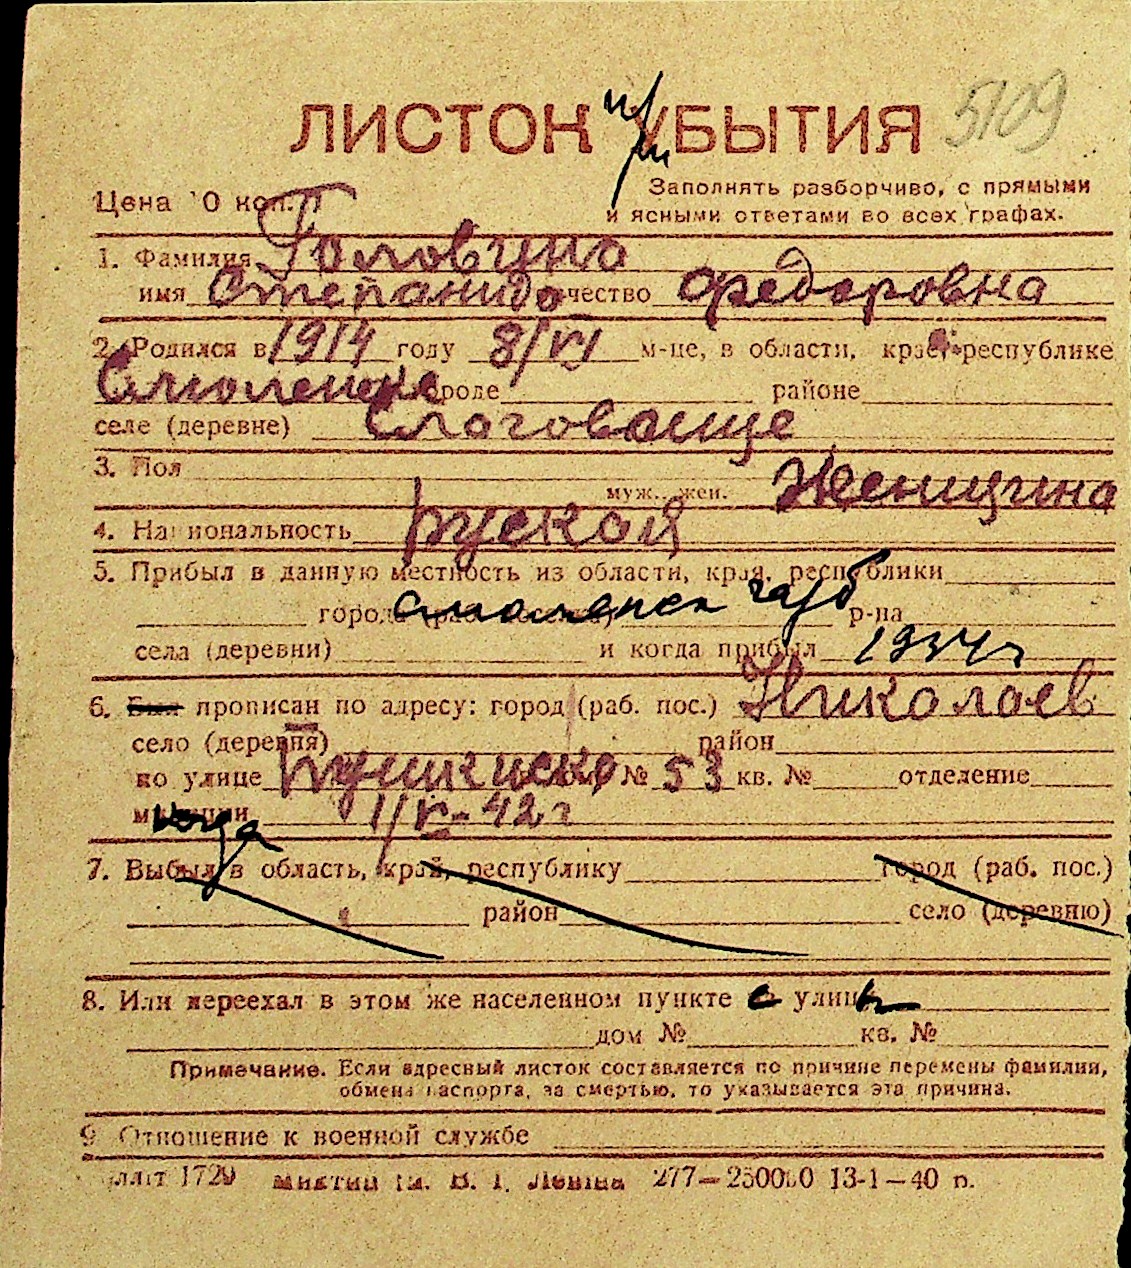 ЛИСТОК при УБЫТИЯ 5109
Цена 10 коп.
Заполнять разборчиво, с прямыми
и ясными ответами во всех графах.
1. Фамилия Головина
имя Степанида отчество Федоровна
2. Родился в 1914 году 8/VI м-це, в области, крае, республике
Смоленска городе районе
селе (деревне) Слаговаище
3. Пол
муж., жен. Женщина
4. Национальность руской
5. Прибыл в данную местность из области, края, республики
города (раб. поселка) Смоленск р-на
села (деревни) и когда прибыл 1934г
6. Был прописан по адресу: город (раб. пос.) Николаев
село (деревня) район
по улице Пушкинско дом № 53 кв. № отделение
милиции 1/V-42 г
когда
7. Выбыл в область, край, республику город (раб. пос.)
район село (деревню)
8. Или переехал в этом же населенном пункте с улицы
дом № кв. №
Примечание. Если адресный листок составляется по причине перемены фамилии,
обмена паспорта, за смертью, то указывается эта причина.
9 Отношение к военной службе
1729 им. В. І. Леніна 277—250000 13-1—40 р.